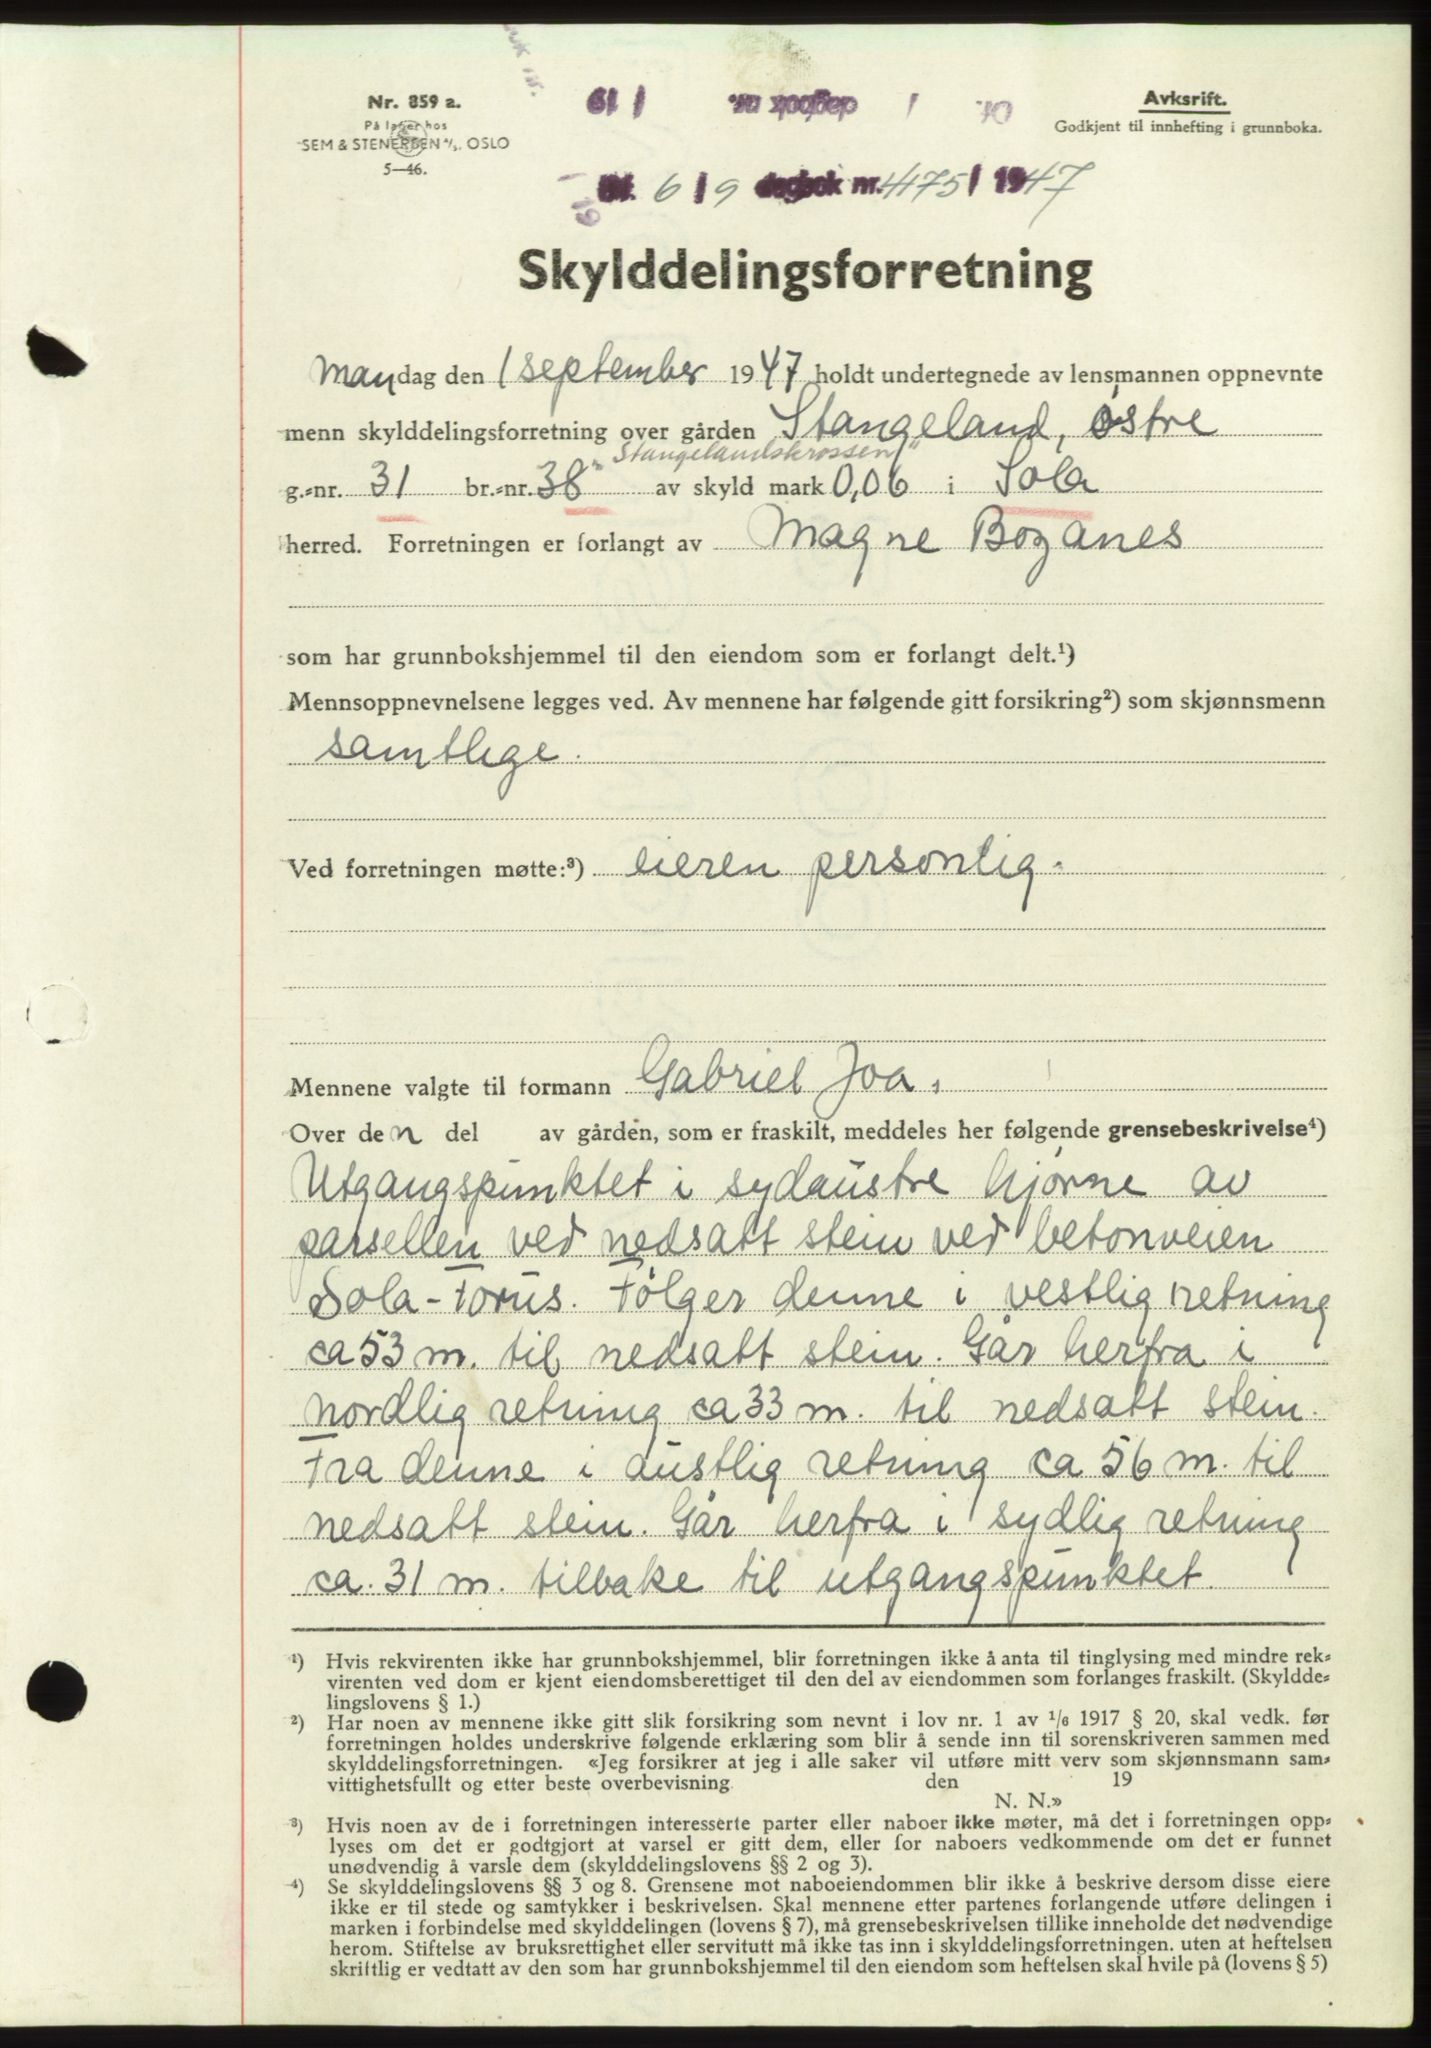 Nr. 859 a.
På lager hos
SEM & STENERSEN A/S. OSLO
5—46.
Avksrift.
Godkjent til innhefting i grunnboka.
19 / dagbok nr. / Df.
6/9 dagbok nr. 4175/1947
Skylddelingsforretning
Mandag den 1 september 1947 holdt undertegnede av lensmannen oppnevnte
menn skylddelingsforretning over gården Stangeland, østre
"Stangelandskrossen"
g.-nr. 31 br.-nr. 38 av skyld mark 0,06 i Sola
herred. Forretningen er forlangt av Magne Boganes
som har grunnbokshjemmel til den eiendom som er forlangt delt.¹)
Mennsoppnevnelsene legges ved. Av mennene har følgende gitt forsikring²) som skjønnsmenn
samtlige.
Ved forretningen møtte:³) eieren personlig.
Mennene valgte til formann Gabriel Joa.
Over den del av gården, som er fraskilt, meddeles her følgende grensebeskrivelse⁴)
Utgangspunktet i sydaustre hjørne av
parsellen ved nedsatt stein ved betonveien
Sola-Forus. Følger denne i vestlig retning
ca 53 m. til nedsatt stein. Går herfra i
nordlig retning ca 33 m. til nedsatt stein.
Fra denne i austlig retning ca 56 m. til
nedsatt stein. Går herfra i sydlig retning
ca. 31 m. tilbake til utgangspunktet.
¹) Hvis rekvirenten ikke har grunnbokshjemmel, blir forretningen ikke å anta til tinglysing med mindre rek-
virenten ved dom er kjent eiendomsberettiget til den del av eiendommen som forlanges fraskilt. (Skyldde-
lingslovens § 1.)
²) Har noen av mennene ikke gitt slik forsikring som nevnt i lov nr. 1 av 1/6 1917 § 20, skal vedk. før
forretningen holdes underskrive følgende erklæring som blir å sende inn til sorenskriveren sammen med
skylddelingsforretningen. «Jeg forsikrer at jeg i alle saker vil utføre mitt verv som skjønnsmann sam-
vittighetsfullt og etter beste overbevisning den 19
N. N.»
³) Hvis noen av de i forretningen interesserte parter eller naboer ikke møter, må det i forretningen opp-
lyses om det er godtgjort at varsel er gitt dem, eller for naboers vedkommende om det er funnet
unødvendig å varsle dem (skylddelingslovens §§ 2 og 3).
⁴) Se skylddelingslovens §§ 3 og 8. Grensene mot naboeiendommen blir ikke å beskrive dersom disse eiere
ikke er til stede og samtykker i beskrivelsen. Skal mennene etter partenes forlangende utføre delingen i
marken i forbindelse med skylddelingen (lovens § 7), må grensebeskrivelsen tillike inneholde det nødvendige
herom. Stiftelse av bruksrettighet eller servitutt må ikke tas inn i skylddelingsforretningen. uten at heftelsen
skriftlig er vedtatt av den som har grunnbokshjemmel til den eiendom som heftelsen skal hvile på (lovens § 5)